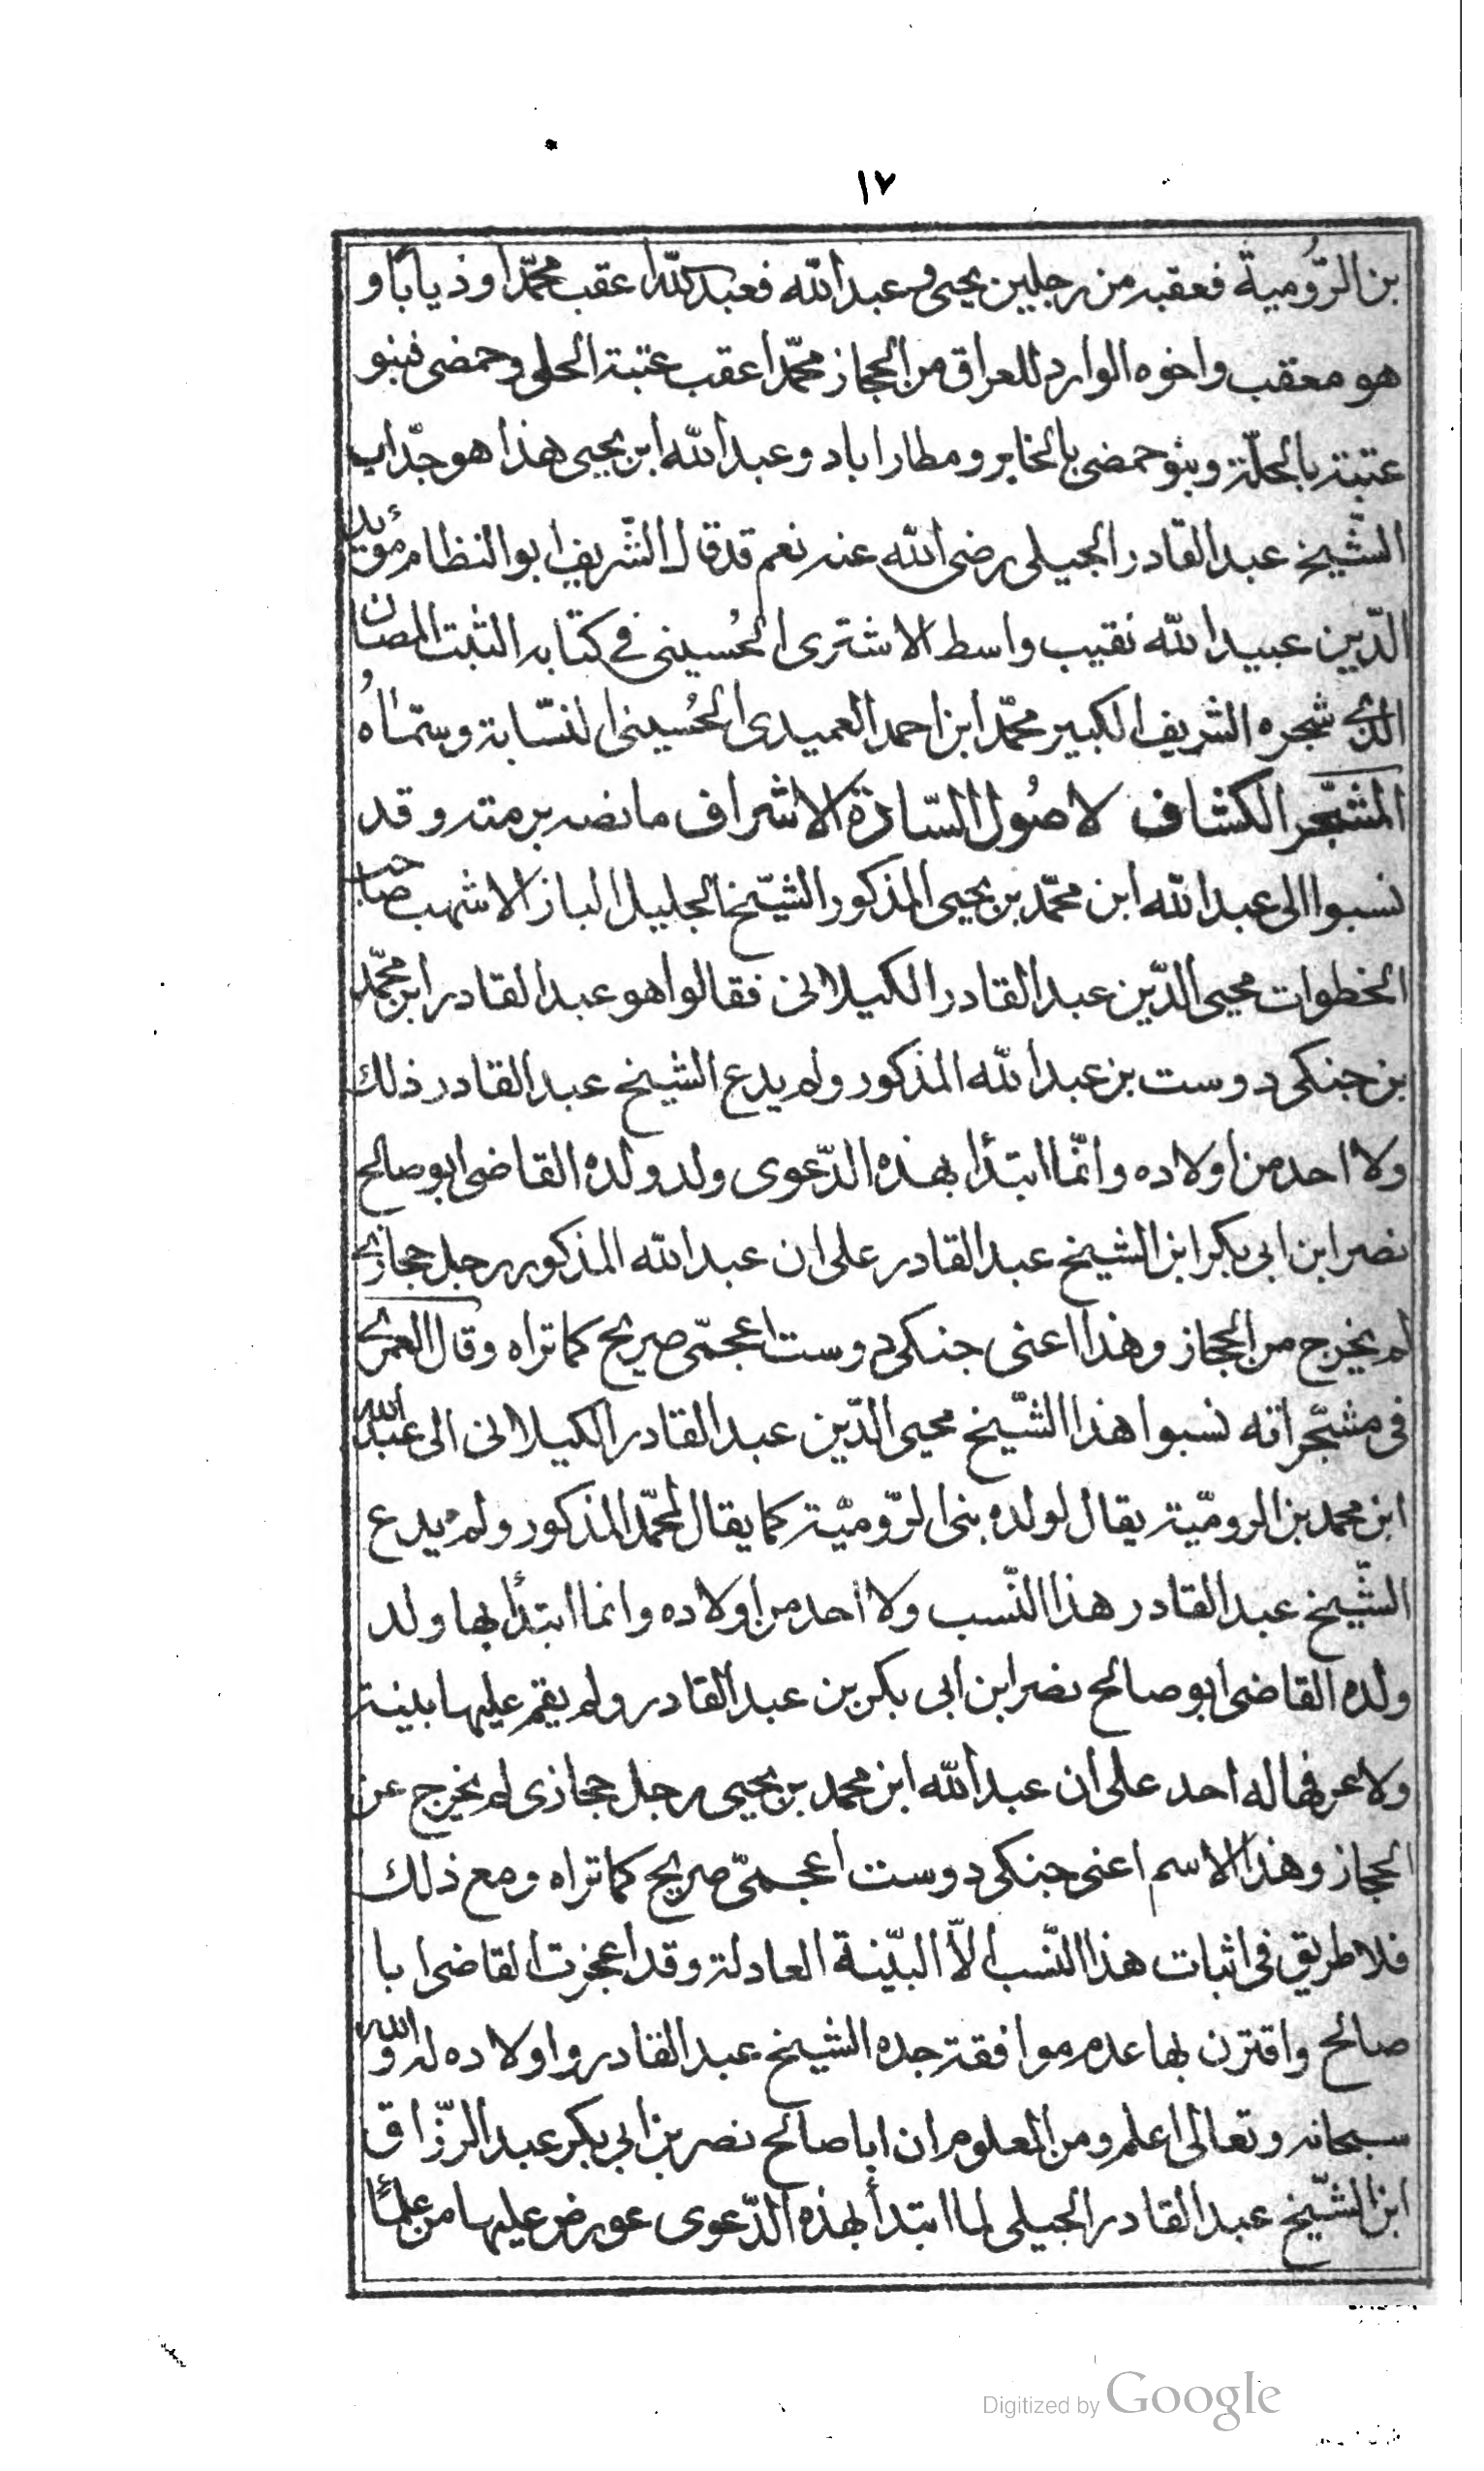 ١٧
بن الرُّومية فعقبه من رجلين يحيى وعبدالله فعبدالله اعقب محمّدا وذيابا و
هو معقب واخوه الوارد للعراق من الحجاز محمّدا عقب عتبة الحلى وحمضى فبنو
عتبة بالحلّة وبنو حمضى بالخابر ومطار اباد وعبدالله ابن يحيى هذا هو جدّاب
الشّيخ عبد القادر الجيلى رضى الله عنه نعم قد قال الشّريف ابو النظام مؤيد
الدّين عبيد الله نقيب واسط الاشترى الحُسينى في كتابه الثبت المصان
الذى شجره الشريف الكبير محمّد ابن احمد العميدى الحُسينى النسّابة وسمّاهُ
المشجّر الكشاف لاصُول السّادة الاشراف ما نصه برمته وقد
نسبوا الى عبدالله ابن محمّد بن يحيى المذكور الشيّخ الجليل الباز الاشهب صاحب
الخطوات محيى الدّين عبد القادر الكيلانى فقالوا هو عبد القادر ابن محمّد
بن جنكى دوست بن عبدالله المذكور ولم يدع الشيخ عبد القادر ذلك
ولا احد من اولاده وانّما ابتدأ بهذه الدّعوى ولد ولده القاضى ابو صالح
نصر ابن ابى بكر ابن الشيخ عبد القادر على ان عبدالله المذكور رجل حجازى
لم يخرج من الحجاز وهذا اعنى جنكى دوست اعجمىّ صريح كما تراه وقال العمرى
فى مشجّراته نسبوا هذا الشّيخ محيى الدّين عبد القادر الكيلانى الى عبدالله
ابن محمد بن الروميّة يقال لولده بنى الرّوميّة كما يقال لمحمّد المذكور ولم يدع
الشّيخ عبد القادر هذا النّسب ولا احد من اولاده وانما ابتدأ بها ولد
ولده القاضى ابو صالح نصر ابن ابى بكر بن عبد القادر ولم يقم عليها بنية
ولا عرفها له احد على ان عبدالله ابن محمد بن يحيى رجل حجازى لم يخرج عن
الحجاز وهذا الاسم اعنى جنكى دوست اعجمىّ صريح كما تراه ومع ذلك
فلا طريق فى اثبات هذا النّسب الاّ البيّنة العادلة وقد اعجزت القاضى ابا
صالح واقترن بها عدم موافقة جده الشيخ عبد القادر واولاده له والله
سبحانه وتعالى اعلم ومن المعلوم ان ابا صالح نصر بن ابى بكر عبد الرّزاق
ابن الشّيخ عبد القادر الجيلى لما ابتدأ بهذه الدّعوى عورض عليها من علمأ
Digitized by Google